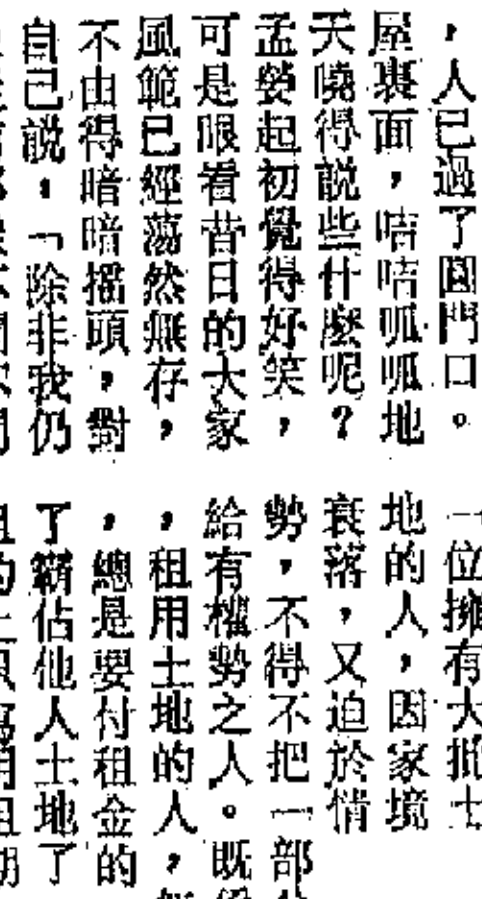 ，人已過了園門口。
屋裏面，咭咭呱呱地
天曉得說些什麼呢？
孟嫈起初覺得好笑，
可是眼看昔日的大家
風範已經蕩然無存，
不由得暗暗搖頭，對
自己說，「除非我仍
一位擁有大批土
地的人，因家境
衰落，又迫於情
勢，不得不把一部
給有權勢之人。既
，租用土地的人，
，總是要付租金的
了霸佔他人土地了